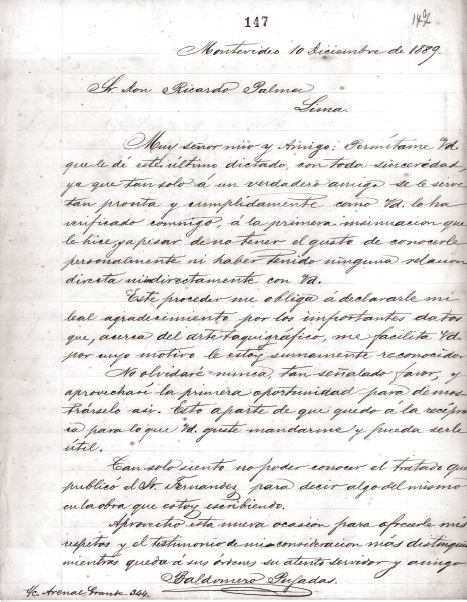 147
147
Montevideo 10 Diciembre de 1889.
Sr. don Ricardo Palma
Lima.
Muy señor mio y Amigo: Permítame Vd
que le dé este último dictado, con toda sinceridad,
ya que tan solo á un verdadero amigo se le sirve
tan pronta y cumplidamente como Vd. lo ha
verificado conmigo, á la primera insinuacion que
le hice, y apesar de no tener el gusto de conocerle
personalmente ni haber tenido ninguna relacion
directa ni indirectamente con Vd.
Este proceder me obliga á declararle mi
leal agradecimiento por los importantes datos
que, acerca del arte taquigráfico, me facilita Vd.
por cuyo motivo le estoy sumamente reconocido.
No olvidaré nunca tan señalado favor, y
aprovecharé la primera oportunidad para demos
trárselo asi. Esto aparte de que quedo a la recipro
ca para lo que Vd. guste mandarme y pueda serle
útil.
Tan solo siento no poder conocer el tratado que
publicó el Sr. Fernandez para decir algo del mismo
en la obra que estoy escribiendo.
Aprovecho esta nueva ocasión para ofrecerle mis
respetos y el testimonio de mi consideracion más distinguida
mientras queda á sus órdenes su atento servidor y amigo
Baldomero Pujadas.
S/c Arenal Grande 344.